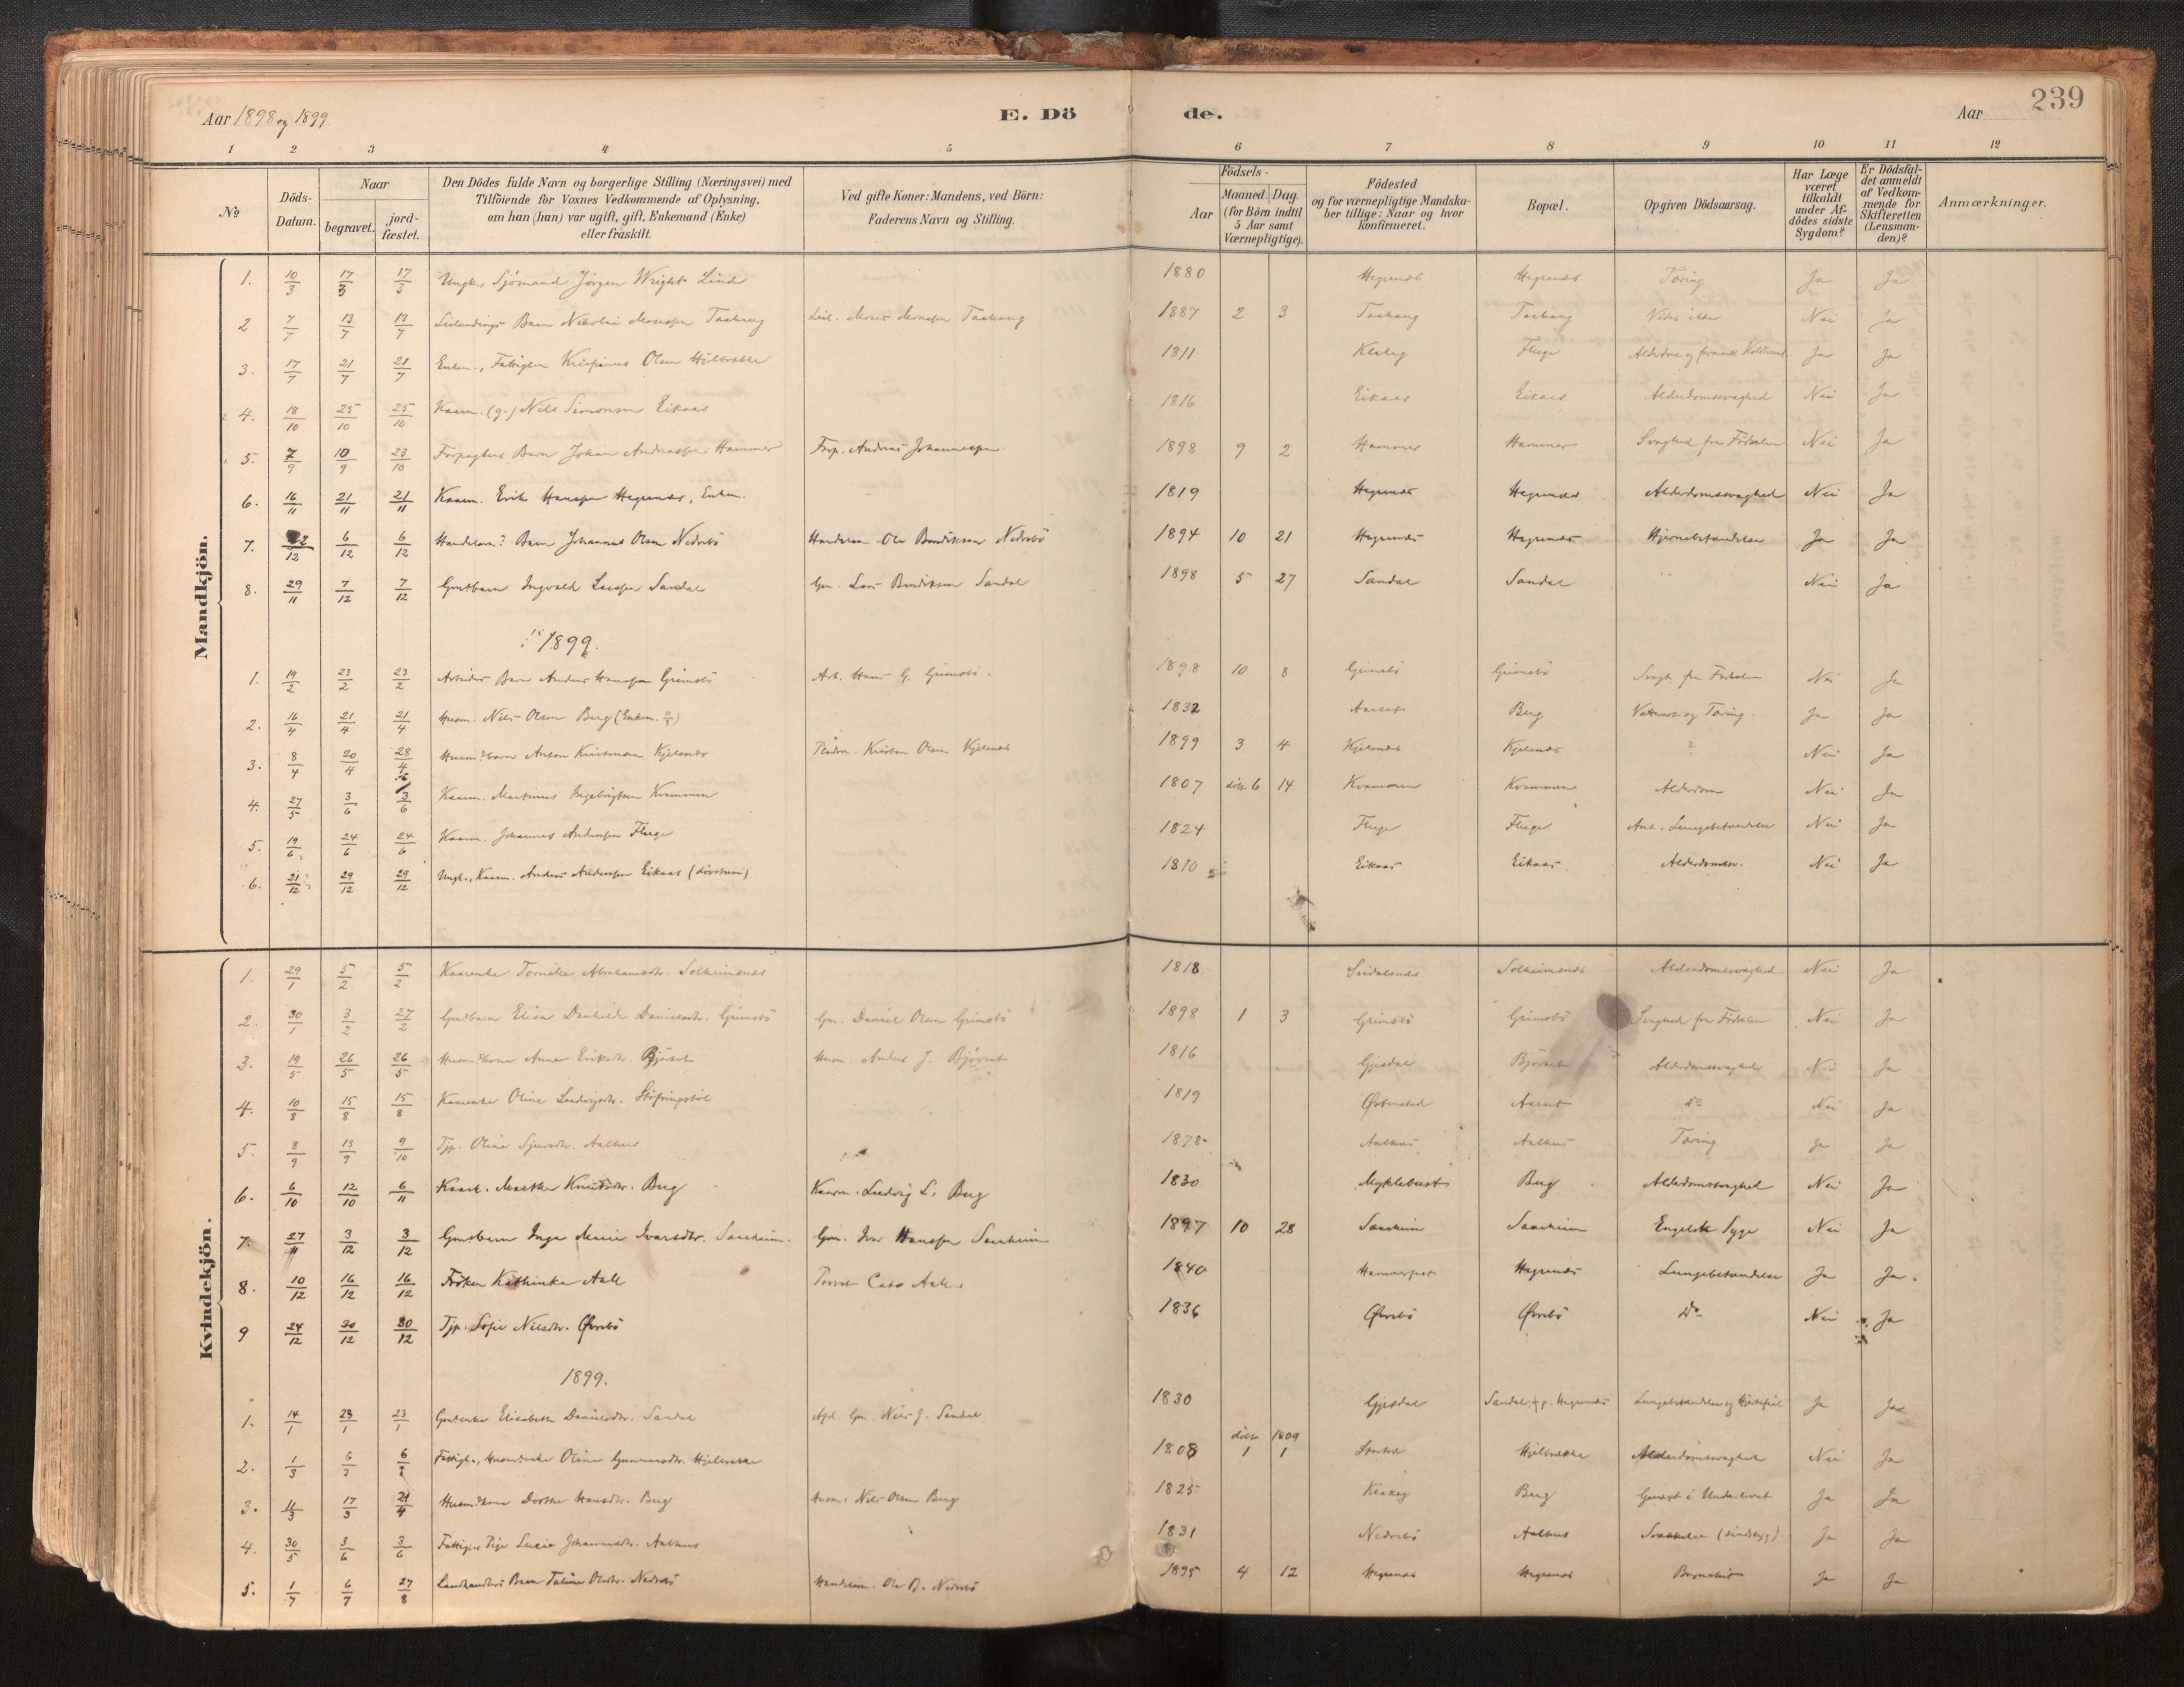 239
Aar 1898 og 1899.
E. Döde.
Aar
1 2 3 4 5 6 7 8 9 10 11 12
№
Döds-Datum.
Naar
begravet.
jord-fæstet.
Den Dödes fulde Navn og borgerlige Stilling (Næringsvei) med
Tilföiende for Voxnes Vedkommende af Oplysning,
om han (hun) var ugift, gift, Enkemand (Enke)
eller fraskilt.
Ved gifte Koner: Mandens, ved Börn:
Faderens Navn og Stilling.
Födsels-
Aar
Maaned. Dag.
(for Börn indtil
5 Aar samt
Værnepligtige).
Födested
og for værnepligtige Mandska-
ber tillige: Naar og hvor
konfirmeret.
Bopæl.
Opgiven Dödsaarsag.
Har Læge
været
tilkaldt
under Af-
dödes sidste
Sygdom?
Er Dödsfal-
det anmeldt
af Vedkom-
mende for
Skifteretten
(Lensman-
den)?
Anmærkninger.
Mandkjön.
1. 10/3 17/3 17/3 Ungk., Sjömand Jörgen Wright Lind 1880 Hegrenæs Hegrenæs Tæring Ja Ja
2 7/7 13/7 13/7 Barn Nikolai Monssen Taahaug Monssen Taahaug 1887 2 3 Taahaug Taahaug Vides ikke Nei Ja
3. 17/7 21/7 21/7 Enkem., Olsen Hjelbrekke 1811 Fluge Alderdom og Ja Ja
4. 18/10 25/10 25/10 Kaarm. (g.) Nils Simonsen Eikaas 1816 Eikaas Eikaas Alderdomssvaghed Nei Ja
5. 7/9 10/9 23/10 Forpagters Barn Johan Andreassen Hammer Forp. Andreas Johannessen 1898 9 2 Hammer Hammer Svaghed fra Fødselen Nei Ja
6. 16/11 21/11 21/11 Kaarm. Erik Hanssen Hegrenæs, Enkem. 1819 Hegrenæs Hegrenæs Alderdomssvaghed Nei Ja
7. 2/12 6/12 6/12 Barn Johannes Olsen Nedrebö Ole Bendiksen Nedrebö 1894 10 21 Hegrenæs Hegrenæs Hjernebetændelse Ja Ja
8. 29/11 7/12 7/12 Gmbarn Ingvald Larssen Sandal Gm. Lars Bendiksen Sandal 1898 5 27 Sandal Sandal " Nei Ja
1899.
1. 19/2 23/2 23/2 Arbeider Barn Anders Hanssen Grimsbö Arb. Hans G. Grimsbö. 1898 10 8 Grimsbö Grimsbö Svagh. fra Fødselen Nei Ja
2. 16/4 21/4 21/4 Husm. Nils Olsen Berg (Enkem.) 1832 Aarset Berg Vattersot og Tæring. Ja Ja
3. 8/4 20/4 28/4 Husm. barn Anton Kristensen Kjelsnæs Kristen Olsen Kjelsnæs 1899 3 4 Kjelsnæs Kjelsnæs ? Nei Ja
4. 27/5 3/6 3/6 Kaarm. Martinus Ingebrigtsen Kvammen 1807 döbt 6 14 Kvammen Kvammen Alderdom Nei Ja
5. 19/6 24/6 24/6 Kaarm. Johannes Anderssen Fluge 1824 Fluge Fluge Ant. Lungebetændelse Nei Ja
6. 21/12 29/12 29/12 Ungk., Kaarm. Anders Anderssen Eikaas (dövstum) 1810 Eikaas Eikaas Alderdomssv. Nei Ja
Kvindekjön.
1. 29/1 5/2 5/2 Kaarenke Abrahamsdtr. Solheimsnæs 1818 Solheimsnæs Alderdomssvaghed Nei Ja
2. 30/1 3/2 27/2 Gmbarn Elisa Danielsdtr. Grimsbö Gm. Daniel Olsen Grimsbö 1898 1 3 Grimsbö Grimsbö Svaghed fra Fødselen Nei Ja
3. 19/5 26/5 26/5 Husm.kone Anne Eriksdtr. Björset Husm. Anders J. Björset 1816 Gjesdal Björset Alderdomssvaghed Nei Ja
4. 10/8 15/8 15/8 Kaarenke Oline Ludvigsdtr. 1819 Aarset do Nei Ja
5. 8/9 13/9 9/10 Tjp. Oline Sjursdtr. Aalhus 1878 Aalhus Aalhus Tæring Ja Ja
6. 6/10 12/10 6/11 Kaark. Marthe Knutsdtr. Berg Kaarm. Ludvig L. Berg 1830 Myklebust Berg Alderdomssvaghed Nei Ja
7. 27/11 3/12 3/12 Gmbarn Inga Marie Ivarsdtr. Saxheim. Gm. Ivar Hanssen Saxheim 1897 10 28 Saxheim Saxheim Engelsk Syge Nei Ja
8. 10/12 16/12 16/12 Fröken Kathinka Aall Provst Cato Aall. 1840 Hammerfest Hegrenæs Lungebetændelse Ja Ja.
9 24/12 30/12 30/12 Tjp. Sofie Nilsdtr. Øvrebö 1836 Øvrebö Øvrebö Do Nei Ja
1899.
1. 14/1 23/1 23/1 Gmenke Elisabeth Danielsdtr. Sandal Afd. Gm. Nils J. Sandal 1830 Gjesdal Sandal Hegrenæs Lungebetændelse og Hjertefeil Ja Ja
2. 1/3 6/3 6/3 Fattigl., Husm.enke Oline Gunnarsdtr. Hjelbrekke 1808 döbt 1809 1 1 Hjelbrekke Alderdomssvaghed Nei Ja
3. 11/3 17/3 21/4 Husm.kone Dorthe Hansdtr. Berg Husm. Nils Olsen Berg 1825 Berg i Underlivet Ja Ja
4. 30/5 3/6 3/6 Fattigl. Pige Lucie Johannesdtr. Aalhus 1831 Nedrebö Aalhus (sindssyg) Ja Ja
5. 1/7 6/7 27/8 Landhandlers Barn Oldtr. Nedrebö Handelsm. Ole B. Nedrebö 1895 4 12 Hegrenæs Hegrenæs Bronchit Ja Ja